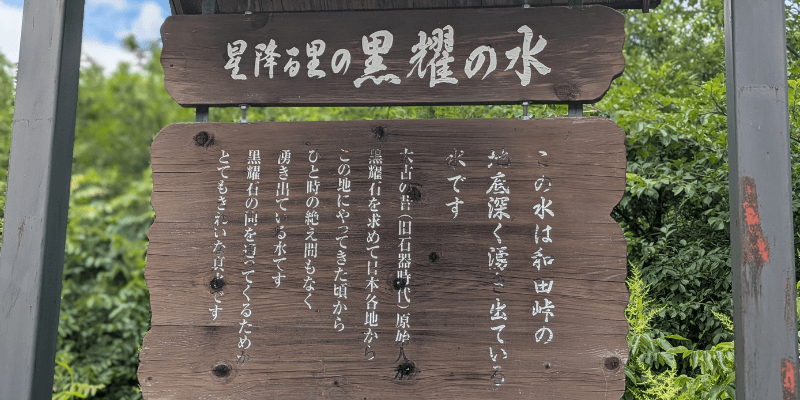 星降る里の黒耀の水
この水は和田峠の
地底深く湧き出ている
水です
太古の昔(旧石器時代)原始人が
黒耀石を求めて日本各地から
この地にやってきた頃から
ひと時の絶え間もなく
湧き出ている水です
黒耀石の間を通ってくるためか
とてもきれいな水です